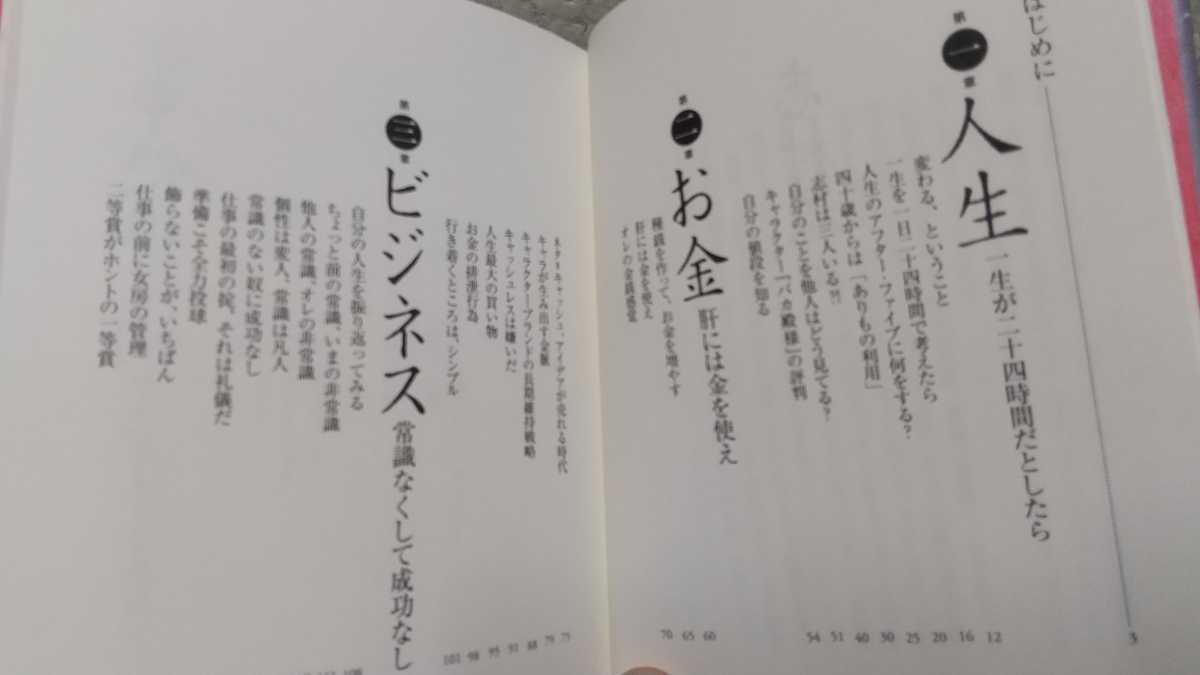 はじめに 3
第一章 人生 一生が二十四時間だとしたら
変わる、ということ 12
一生を一日二十四時間で考えたら 16
人生のアフター・ファイブに何をする? 20
四十歳からは「ありもの利用」 25
志村は三人いる?! 30
自分のことを他人はどう見てる? 40
キャラクター『バカ殿様』の評判 51
自分の値段を知る 54
第二章 お金 肝には金を使え
種銭を作って、お金を増やす 60
肝には金を使え 65
オレの金銭感覚 70
ネタ・キャッシュ・アイデアが売れる時代 75
キャラが生み出す金脈 79
キャラクターブランドの長期維持戦略 88
キャッシュレスは嫌いだ 91
人生最大の買い物 95
お金の排泄行為 98
行き着くところは、シンプル 101
第三章 ビジネス 常識なくして成功なし
自分の人生を振り返ってみる
ちょっと前の常識、いまの非常識
他人の常識、オレの非常識
個性は変人、常識は凡人
常識のない奴に成功なし
仕事の最初の掟、それは礼儀だ
準備こそ全力投球
飾らないことが、いちばん
仕事の前に女房の管理
二等賞がホントの一等賞